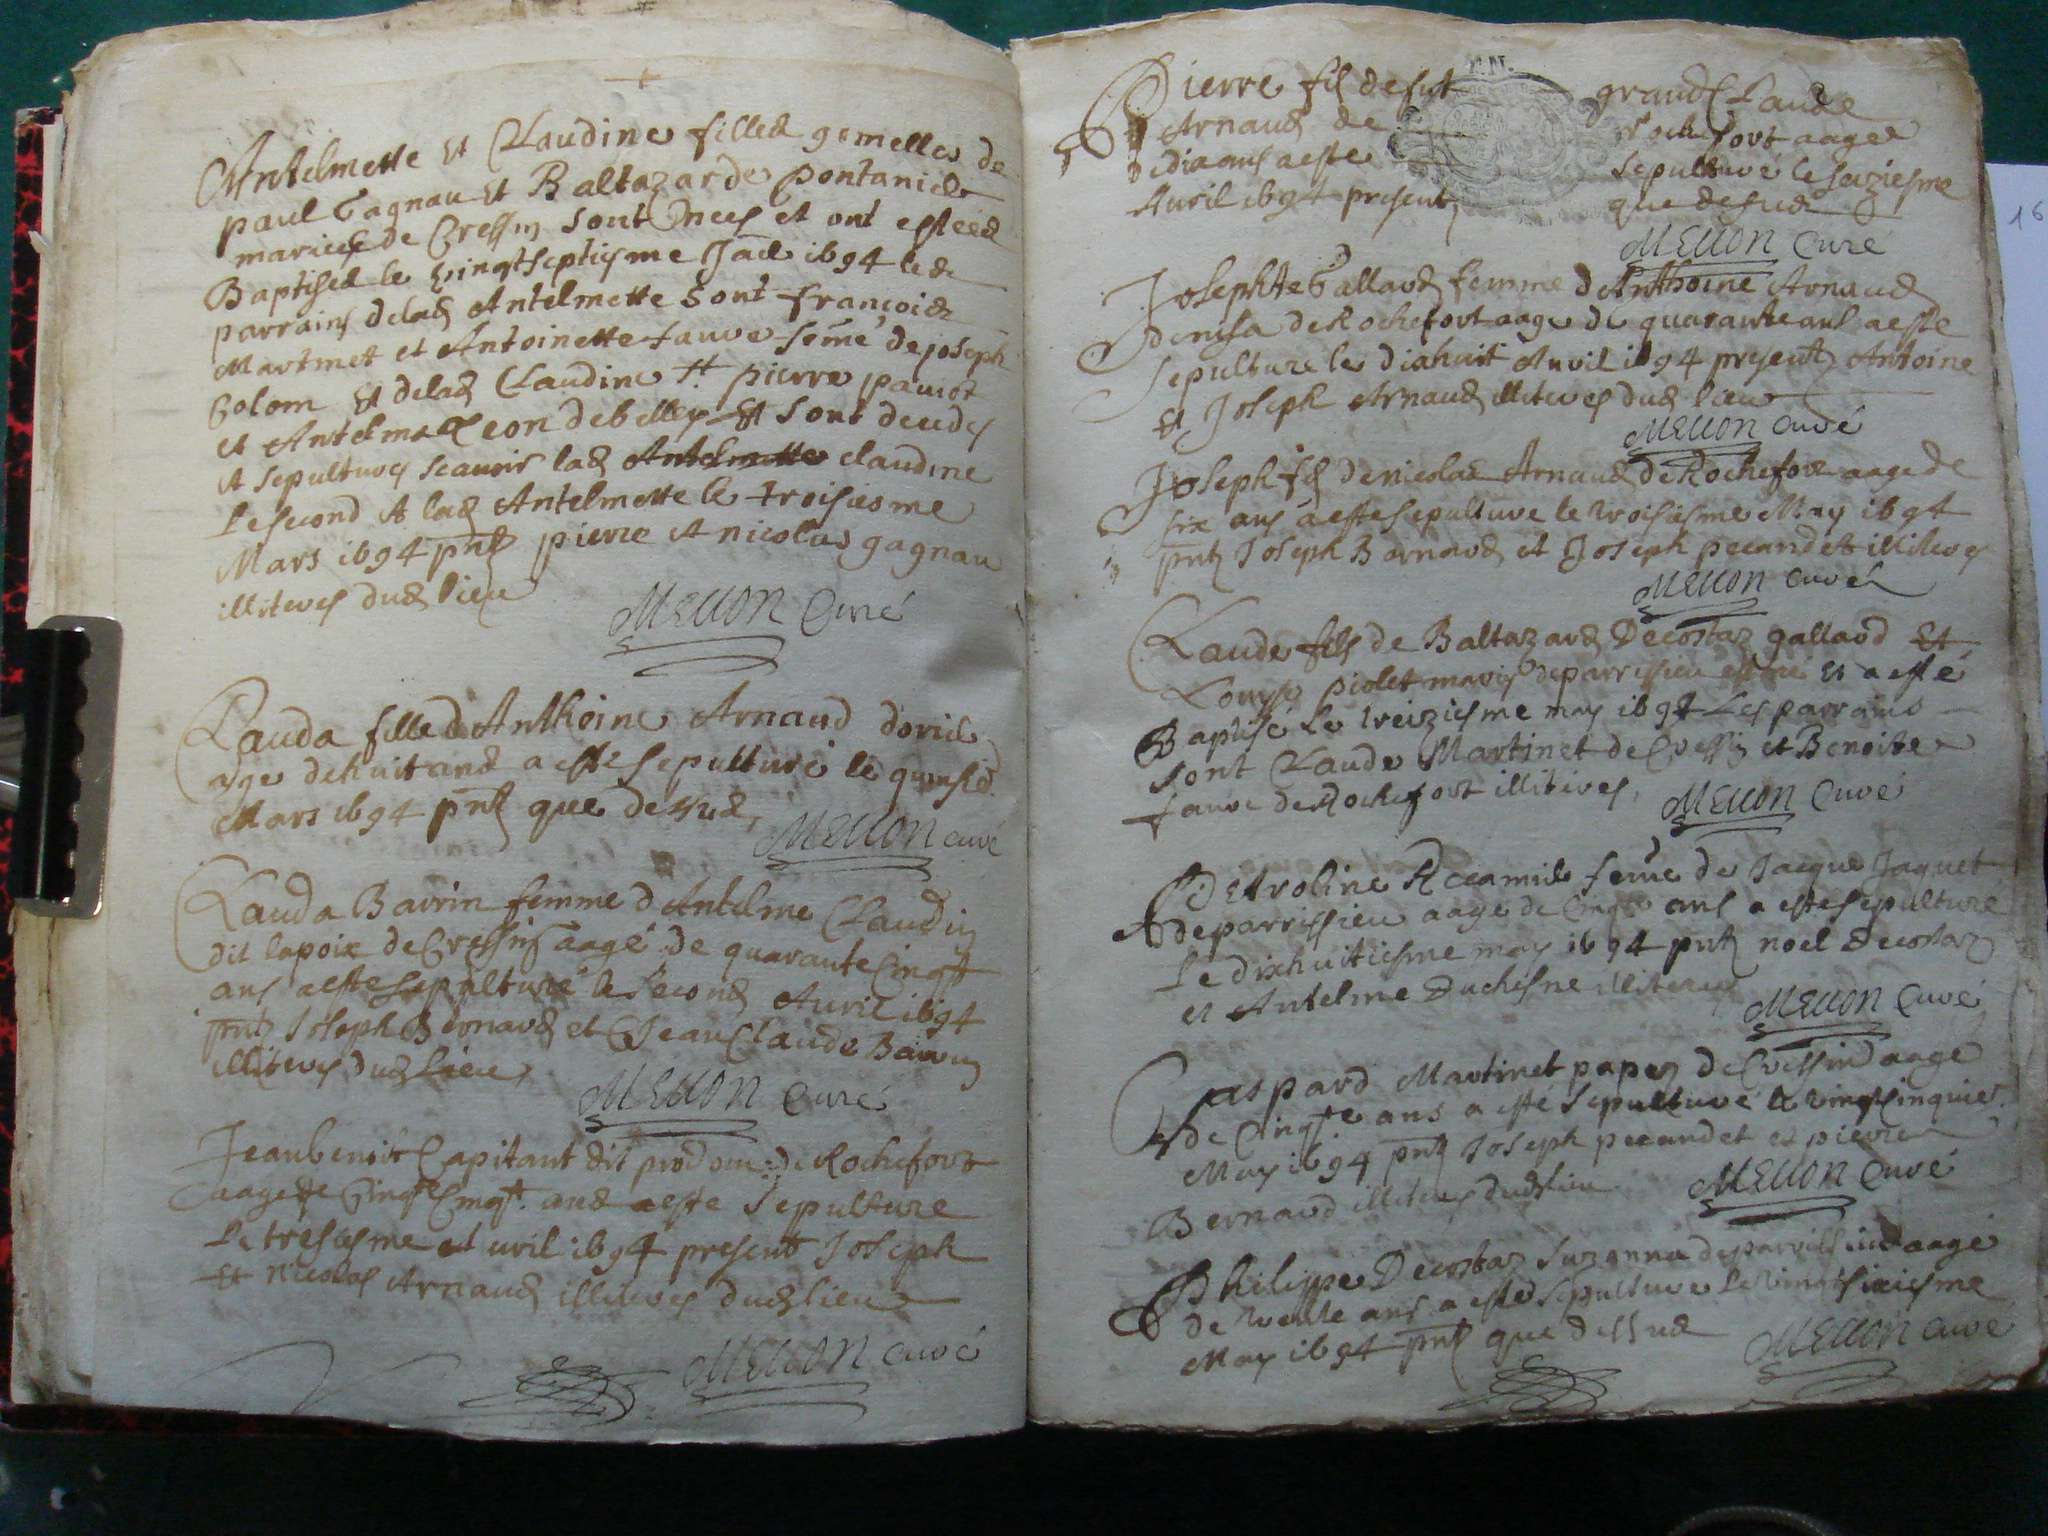 Antelmette et Claudine filles gemelles de
paul gagnau et Baltazarde pontanier
maries de Cressin sont nees et ont estees
Baptisees le vingtseptiesme 1694 les
parrains de lad Antelmette sont françois
Martinet et Antoinette fauve feme de joseph
Colom et de lad Claudine pierre
et Antelma de belley et sont decedes
et sepultures scavoir lad Antelmette claudine
Le second et lad Antelmette le troisiesme
Mars 1694 pnts pierre et nicolas gagnau
illiteres dud lieu
Mellon Curé
Clauda fille d Anthoine Arnaud
age de huit ans a esté sepulturé le
Mars 1694 pnts que dessus
Mellon curé
Clauda Bavrin femme d Antelme Claudin
dit lapoix de Cressin aagé de quarante Cinqt
ans a esté sepulturé le second Avril 1694
pnts Joseph Bernard et Jean Claude Bavrin
illiteres dud lieu
Mellon Curé
Jean benoit Capitant dit de Rochefort
aage de Cinqte Cinqt ans a este sepulture
Le tresiesme Avril 1694 present Joseph
et nicolas Arnaud illiteres dud lieu
Mellon Curé
Pierre fils de fut grand Claude
Arnaud de Rochefort aage
de dix ans a este sepulturé le seziesme
Avril 1694 presents que dessus
Mellon Curé
Josephte Gallard femme d Anthoine Arnaud
de Rochefort aage de quarante ans a este
sepulture le dixhuit Avril 1694 presents Antoine
et Joseph Arnaud illiteres dud lieu
Mellon Curé
Joseph fils de nicolas Arnaud de Rochefort aage de
six ans a este sepulture le troisiesme May 1694
pnts Joseph Barnard et Joseph pecandet illiteres
Mellon curé
Claude fils de Baltazard Decostaz gallard et
Louyse piolet maries de parrissieu est né et a esté
Baptisé Le treiziesme may 1694 Les parrains
sont Claude Martinet de Cressin et Benoite
fauve de Rochefort illiteres
Mellon Curé
Petroline Recamier feme de Jacque Jaquet
de parrissieu aage de Cinqte ans a este sepulturé
Le dixhuitiesme may 1694 pnts noel Decostaz
et Antelme Duchesne illiteres
Mellon Curé
Gaspard Martinet papaz de Cressin aage
de Cinqte ans a esté sepulturé le vingtcinquies.
May 1694 pnts Joseph pecandet et pierre
Bernard illiteres dud lieu
Mellon Curé
Philippe Decostaz Suzanna de parrissieu aage
de trente ans a esté sepulture Le vingtsixiesme
May 1694 pnts que dessus
Mellon curé
16